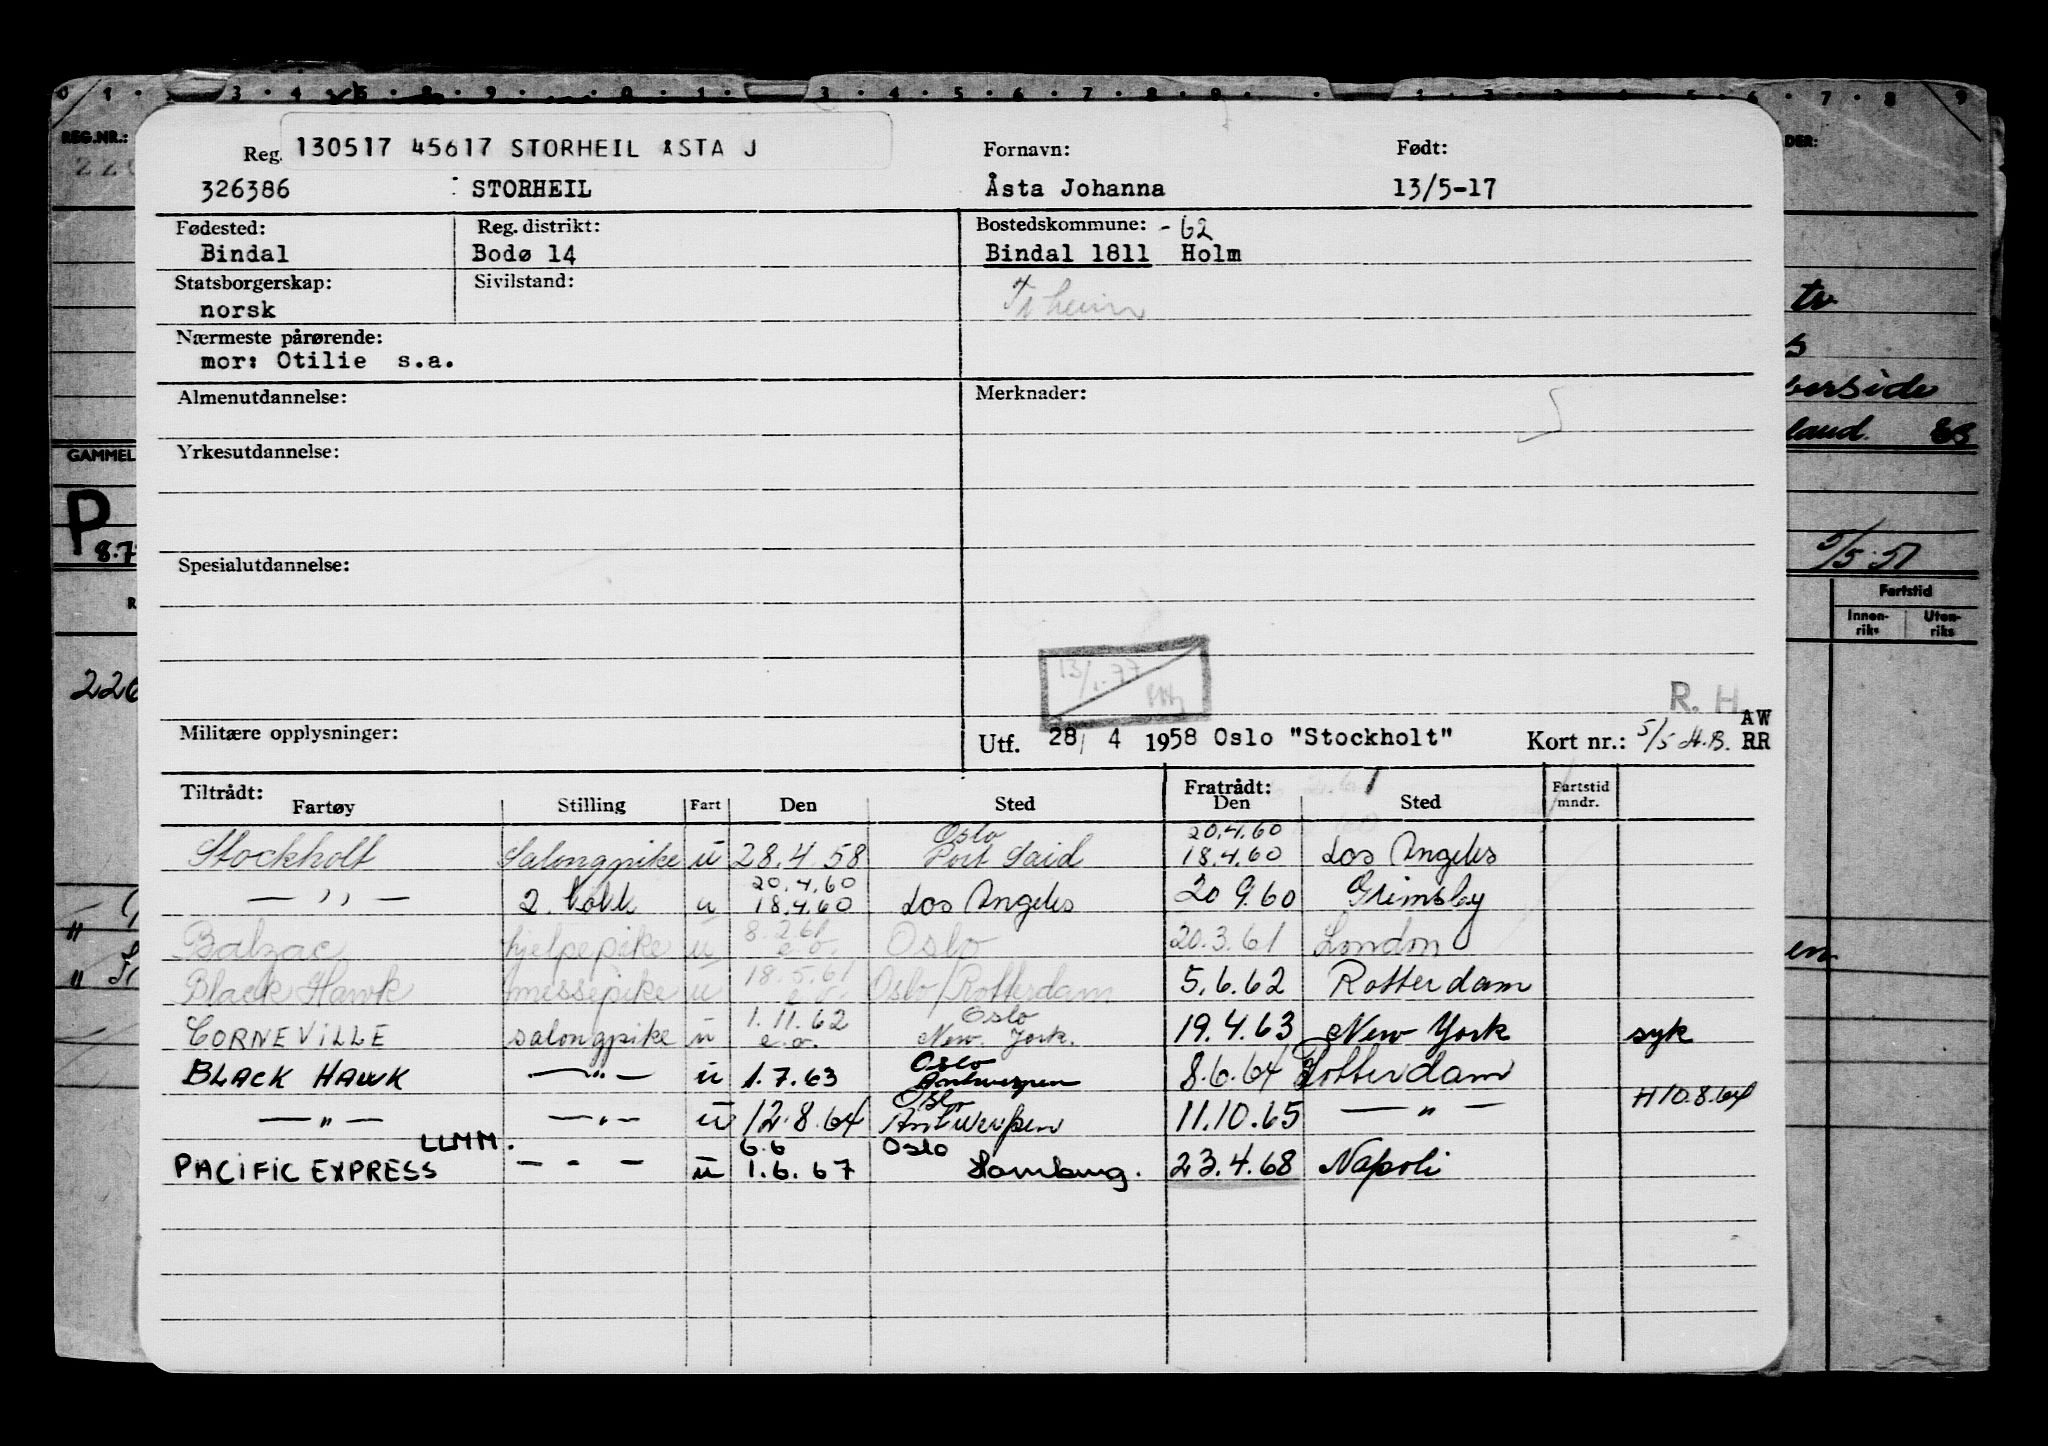 REG.NR.:
Reg. 130517 45617 STORHEIL ÅSTA J Fornavn: Født:
326386 STORHEIL Åsta Johanna 13/5-17
Fødested: Reg. distrikt: Bostedskommune: -62
Bindal Bodø 14 Bindal 1811 Holm
Statsborgerskap: Sivilstand:
norsk Trheim
Nærmeste pårørende:
mor: Otilie s.a.
Almenutdannelse: Merknader:
Yrkesutdannelse:
GAMMEL
P
Spesialutdannelse:
5/5-51
Fartstid
Innen-riks Uten-riks
226
13/1-77
R. H. AW
Militære opplysninger: Utf. 28/ 4 1958 Oslo "Stockholt" Kort nr.: 5/5 H.B. RR
Tiltrådt: Fratrådt: Fartstid
Fartøy Stilling Fart Den Sted Den Sted mndr.
Oslo 20.4.60
Stockholt Salongpike u 28.4.58 Port Said 18.4.60 Los Angeles
20.4.60
— ,, — 2. kokk u 18.4.60 Los Angeles 20 9.60 Grimsby
8.2.61
Balzac hjelpepike u e.o. Oslo 20.3.61 London
18.5.61
Black Hawk messepike u e.o. Oslo/Rotterdam 5.6.62 Rotterdam
1.11.62 Oslo
CORNEVILLE salongpike u e.o. New York. 19.4.63 New York syk
Oslo
BLACK HAWK — " — u 1.7.63 Antwerpen 8.6.64 Rotterdam
Oslo H10.8.64
— " — — " — u 12.8.64 Antwerpen 11.10.65 — " —
LLMM. 6.6 Oslo
PACIFIC EXPRESS — " — u 1.6.67 Hamburg. 23.4.68 Napoli